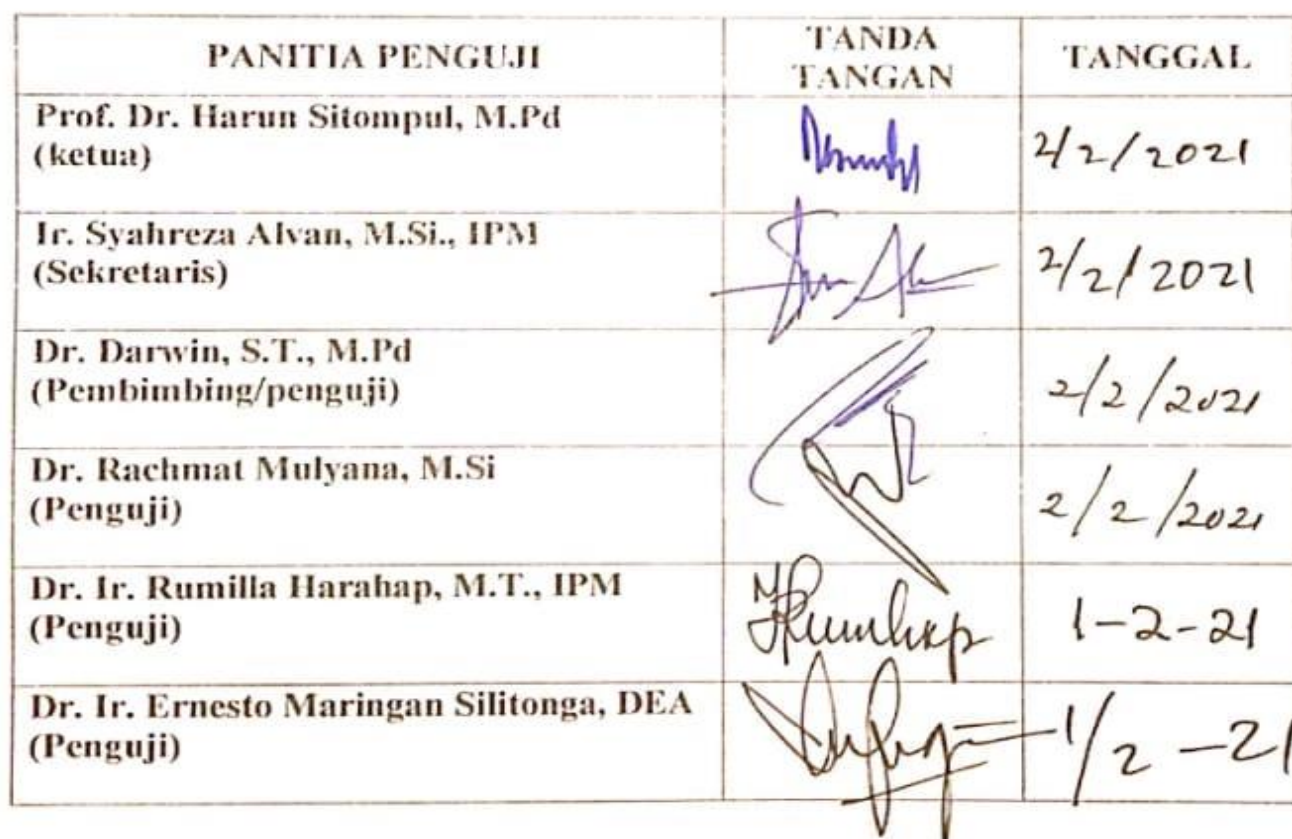 PANITIA PENGUJI
TANDA
TANGAN
TANGGAL
Prof. Dr. Harun Sitompul, M.Pd
(ketua)
2/2/2021
Ir. Syahreza Alvan, M.Si., IPM
(Sekretaris)
2/2/2021
Dr. Darwin, S.T., M.Pd
(Pembimbing/penguji)
2/2/2021
Dr. Rachmat Mulyana, M.Si
(Penguji)
2/2/2021
Dr. Ir. Rumilla Harahap, M.T., IPM
(Penguji)
1-2-21
Dr. Ir. Ernesto Maringan Silitonga, DEA
(Penguji)
1/2-21